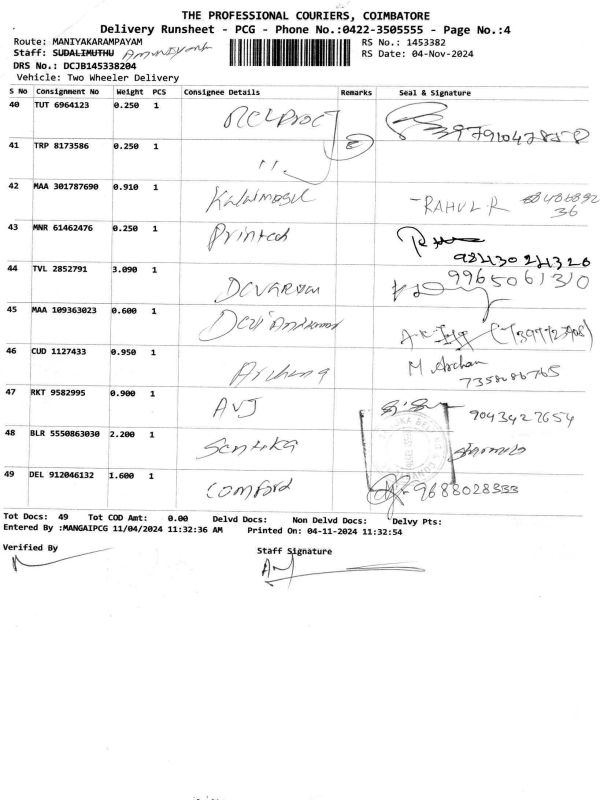 THE PROFESSIONAL COURIERS, COIMBATORE
Delivery Runsheet - PCG - Phone No.:0422-3505555 - Page No.:4
Route: MANIYAKARAMPAYAM RS No.: 1453382
Staff: SUDALIMUTHU RS Date: 04-Nov-2024
DRS No.: DCJB145338204
Vehicle: Two Wheeler Delivery
S No Consignment No Weight PCS Consignee Details Remarks Seal & Signature
40 TUT 6964123 0.250 1
41 TRP 8173586 0.250 1 "
42 MAA 301787690 0.910 1 RAHUL.R
43 MNR 61462476 0.250 1 Printech 9843024320
44 TVL 2852791 3.090 1 9965061310
45 MAA 109363023 0.600 1
46 CUD 1127433 0.950 1 Archana M. Archana
7358086765
47 RKT 9582995 0.900 1 AVJ 9043427654
48 BLR 5550863030 2.200 1
49 DEL 912046132 1.600 1 Comford 9688028333
Tot Docs: 49 Tot COD Amt: 0.00 Delvd Docs: Non Delvd Docs: Delvy Pts:
Entered By :MANGAIPCG 11/04/2024 11:32:36 AM Printed On: 04-11-2024 11:32:54
Verified By Staff Signature